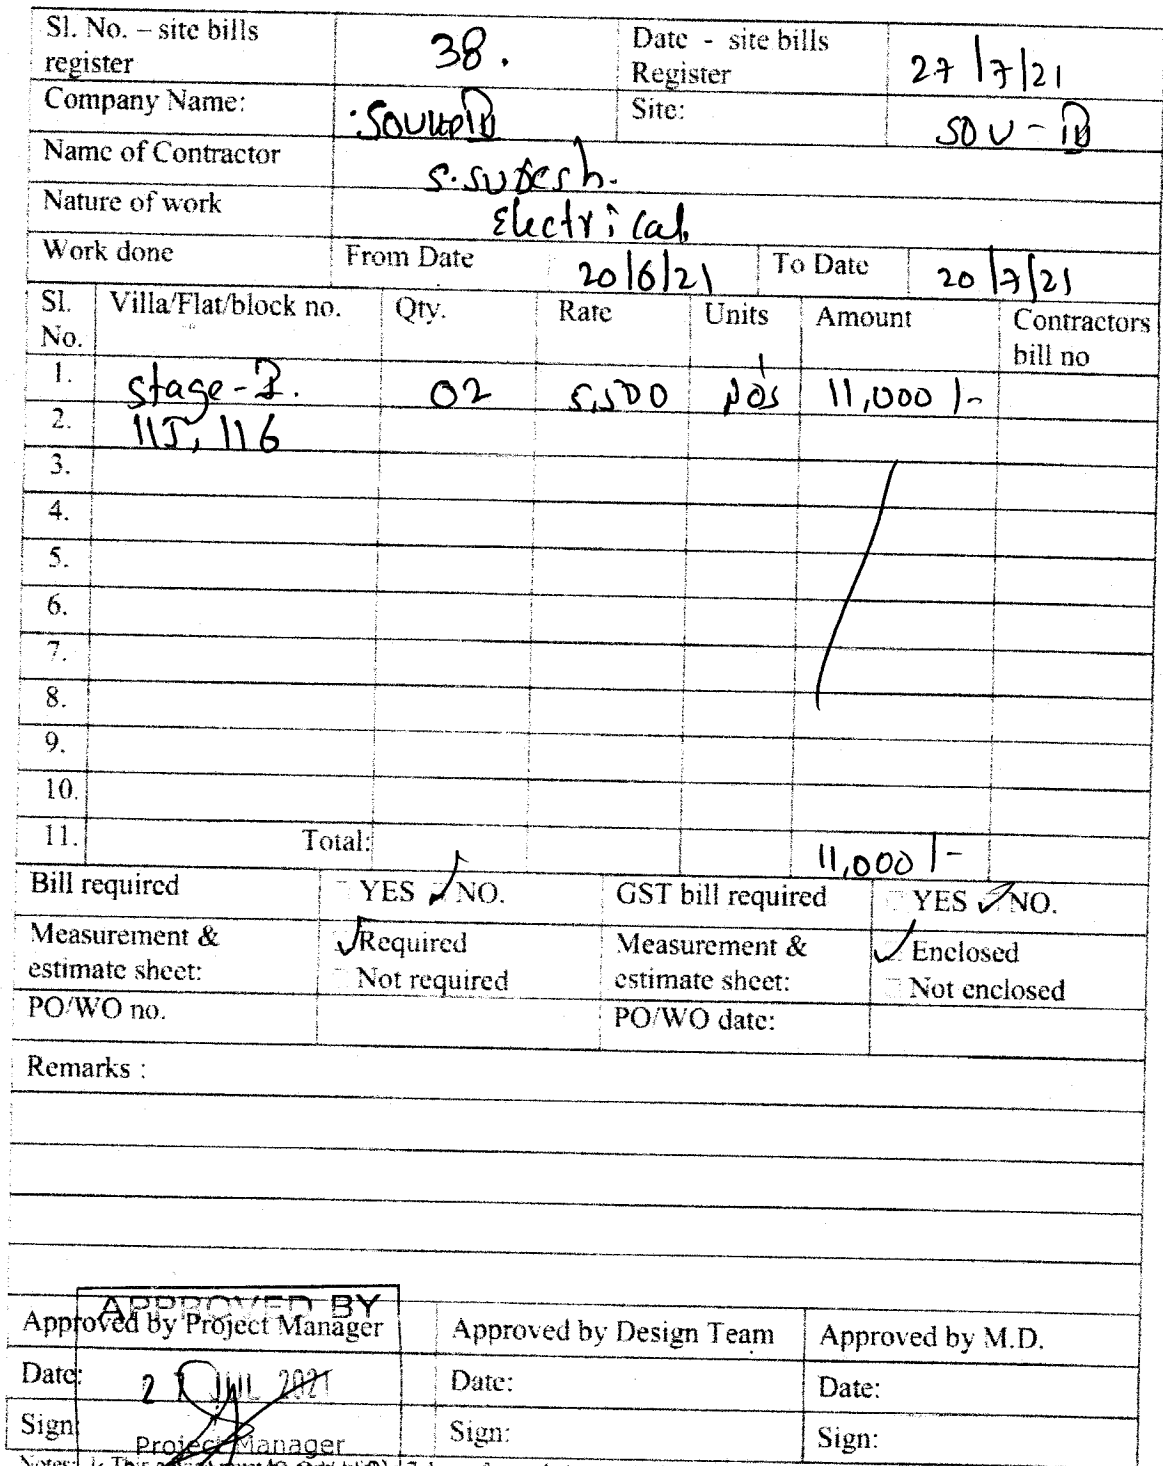 Sl. No. – site bills register 38. Date - site bills Register 27/7/21
Company Name: Site: SOV - III
Name of Contractor S. Suresh.
Nature of work Electrical
Work done From Date 20/6/21 To Date 20/7/21
Sl. No. Villa/Flat/block no. Qty. Rate Units Amount Contractors bill no
1. Stage-I. 02 5,500 Nos 11,000/-
2. 115, 116
3.
4.
5.
6.
7.
8.
9.
10.
11. Total: 11,000/-
Bill required YES NO. GST bill required YES NO.
Measurement & estimate sheet: Required Measurement & estimate sheet: Enclosed
Not required Not enclosed
PO/WO no. PO/WO date:
Remarks :
APPROVED BY
Approved by Project Manager Approved by Design Team Approved by M.D.
Date: JUL 2021 Date: Date:
Sign: Project Manager Sign: Sign:
Notes: 1. This